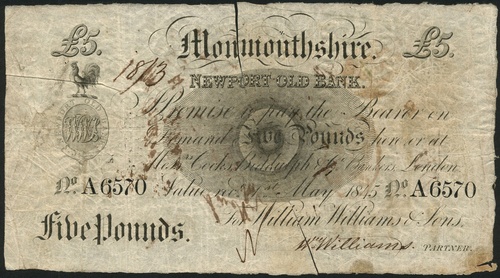 £5. Monmouthshire. £5.
1813
NEWPORT OLD BANK.
I Promise to pay the Bearer on
Demand Five Pounds here, or at
Mess.rs Cocks, Biddulph & Co. Bankers, London
No. A6570 Value rec.d May No. A6570
For William Williams & Sons.
Five Pounds.
Wm Williams PARTNER.